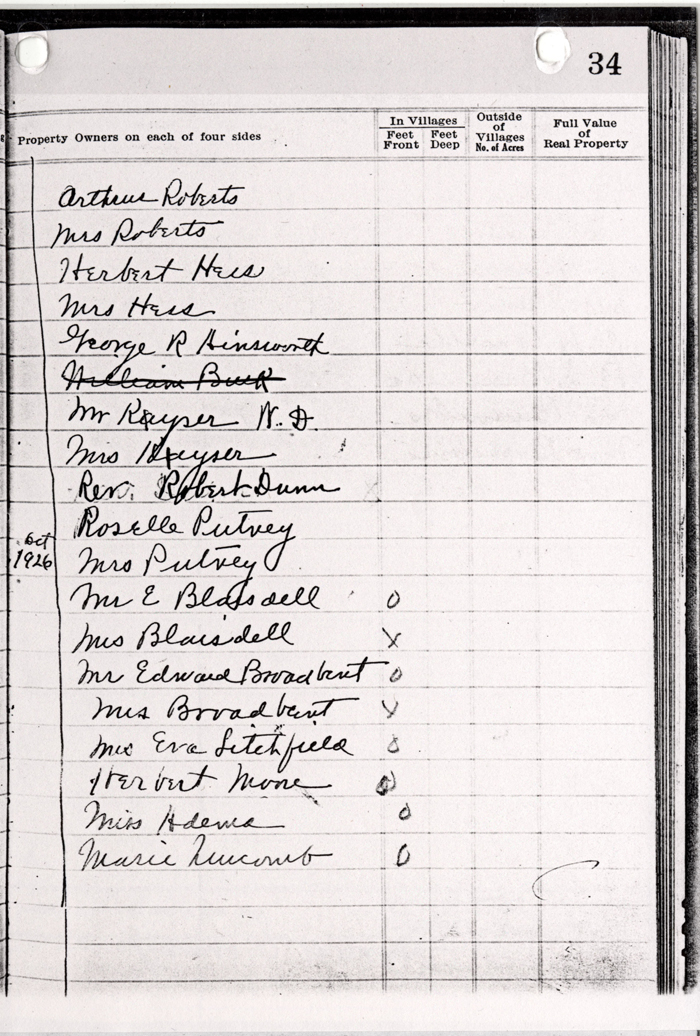 34
Property Owners on each of four sides
In Villages
Feet Front
Feet Deep
Outside of Villages No. of Acres
Full Value of Real Property
Arthur Roberts
Mrs Roberts
Herbert Hess
Mrs Hess
George R Hinsworth
William Burk
Mr Keyser N.D.
Mrs Keyser
Rev. Robert Dunn
Roselle Putney
Oct
1926
Mrs Putney
Mr E Blaisdell O
Mrs Blaisdell X
Mr Edward Broadbent O
Mrs Broadbent X
Eva Litchfield O
Herbert Moore O
Miss Adema O
Marie Luscomb O